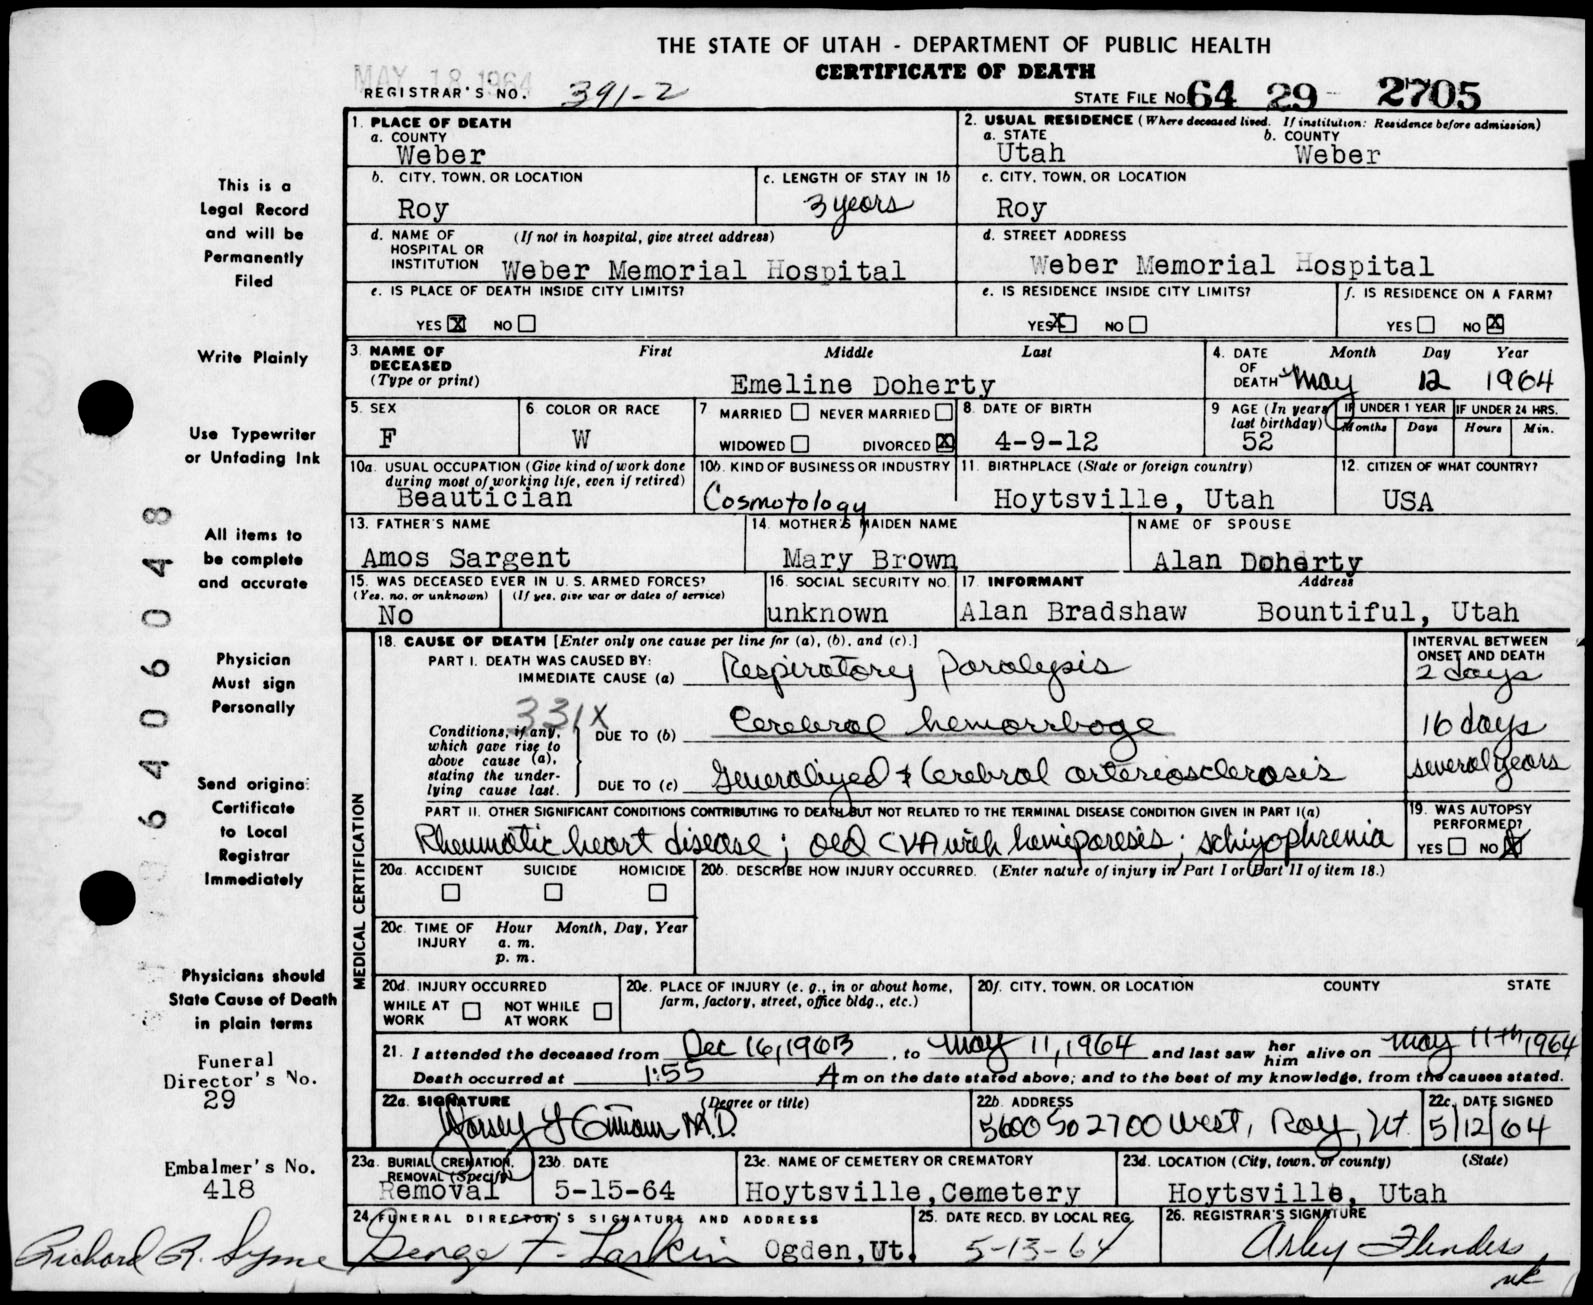 THE STATE OF UTAH - DEPARTMENT OF PUBLIC HEALTH
CERTIFICATE OF DEATH
MAY 18 1964
REGISTRAR'S NO. 391-2
STATE FILE NO. 64 29 2705
1. PLACE OF DEATH
a. COUNTY
Weber
2. USUAL RESIDENCE (Where deceased lived. If institution: Residence before admission)
a. STATE b. COUNTY
Utah Weber
b. CITY, TOWN, OR LOCATION
Roy
c. LENGTH OF STAY IN 1b
3 years
c. CITY, TOWN, OR LOCATION
Roy
d. NAME OF HOSPITAL OR INSTITUTION (If not in hospital, give street address)
Weber Memorial Hospital
d. STREET ADDRESS
Weber Memorial Hospital
e. IS PLACE OF DEATH INSIDE CITY LIMITS?
YES X NO
e. IS RESIDENCE INSIDE CITY LIMITS?
YES X NO
f. IS RESIDENCE ON A FARM?
YES NO X
3. NAME OF DECEASED (Type or print) First Middle Last
Emeline Doherty
4. DATE OF DEATH Month Day Year
May 12 1964
5. SEX
F
6. COLOR OR RACE
W
7 MARRIED NEVER MARRIED
WIDOWED DIVORCED X
8. DATE OF BIRTH
4-9-12
9 AGE (In years last birthday)
52
IF UNDER 1 YEAR IF UNDER 24 HRS.
Months Days Hours Min.
10a. USUAL OCCUPATION (Give kind of work done during most of working life, even if retired)
Beautician
10b. KIND OF BUSINESS OR INDUSTRY
Cosmotology
11. BIRTHPLACE (State or foreign country)
Hoytsville, Utah
12. CITIZEN OF WHAT COUNTRY?
USA
13. FATHER'S NAME
Amos Sargent
14. MOTHER'S MAIDEN NAME
Mary Brown
NAME OF SPOUSE
Alan Doherty
15. WAS DECEASED EVER IN U.S. ARMED FORCES?
(Yes, no, or unknown) (If yes, give war or dates of service)
No
16. SOCIAL SECURITY NO.
unknown
17. INFORMANT Address
Alan Bradshaw Bountiful, Utah
18. CAUSE OF DEATH [Enter only one cause per line for (a), (b), and (c).]
INTERVAL BETWEEN ONSET AND DEATH
PART I. DEATH WAS CAUSED BY:
IMMEDIATE CAUSE (a) Respiratory paralysis 2 days
331X
Conditions, if any, which gave rise to above cause (a), stating the underlying cause last.
DUE TO (b) Cerebral hemorrhage 16 days
DUE TO (c) Generalized & Cerebral arteriosclerosis several years
PART II. OTHER SIGNIFICANT CONDITIONS CONTRIBUTING TO DEATH BUT NOT RELATED TO THE TERMINAL DISEASE CONDITION GIVEN IN PART I(a)
Rheumatic heart disease; old CVA with hemiparesis; schizophrenia
19. WAS AUTOPSY PERFORMED?
YES NO X
MEDICAL CERTIFICATION
20a. ACCIDENT SUICIDE HOMICIDE
20b. DESCRIBE HOW INJURY OCCURRED. (Enter nature of injury in Part I or Part II of item 18.)
20c. TIME OF INJURY Hour Month, Day, Year
a. m.
p. m.
20d. INJURY OCCURRED
WHILE AT WORK NOT WHILE AT WORK
20e. PLACE OF INJURY (e. g., in or about home, farm, factory, street, office bldg., etc.)
20f. CITY, TOWN, OR LOCATION COUNTY STATE
21. I attended the deceased from Dec 16, 1963, to May 11, 1964 and last saw her him alive on May 11th, 1964
Death occurred at 1:55 A m on the date stated above; and to the best of my knowledge, from the causes stated.
22a. SIGNATURE (Degree or title)
M.D.
22b. ADDRESS
5600 So 2700 West, Roy, Ut.
22c. DATE SIGNED
5/12/64
23a. BURIAL, CREMATION, REMOVAL (Specify)
Removal
23b. DATE
5-15-64
23c. NAME OF CEMETERY OR CREMATORY
Hoytsville, Cemetery
23d. LOCATION (City, town, or county) (State)
Hoytsville, Utah
24. FUNERAL DIRECTOR'S SIGNATURE AND ADDRESS
George F. Larkin Ogden, Ut.
25. DATE RECD. BY LOCAL REG.
5-13-64
26. REGISTRAR'S SIGNATURE
Arley Flinders
This is a
Legal Record
and will be
Permanently
Filed
Write Plainly
Use Typewriter
or Unfading Ink
All items to
be complete
and accurate
Physician
Must sign
Personally
Send original
Certificate
to Local
Registrar
Immediately
Physicians should
State Cause of Death
in plain terms
Funeral
Director's No.
29
Embalmer's No.
418
Richard R. Syme
64060048